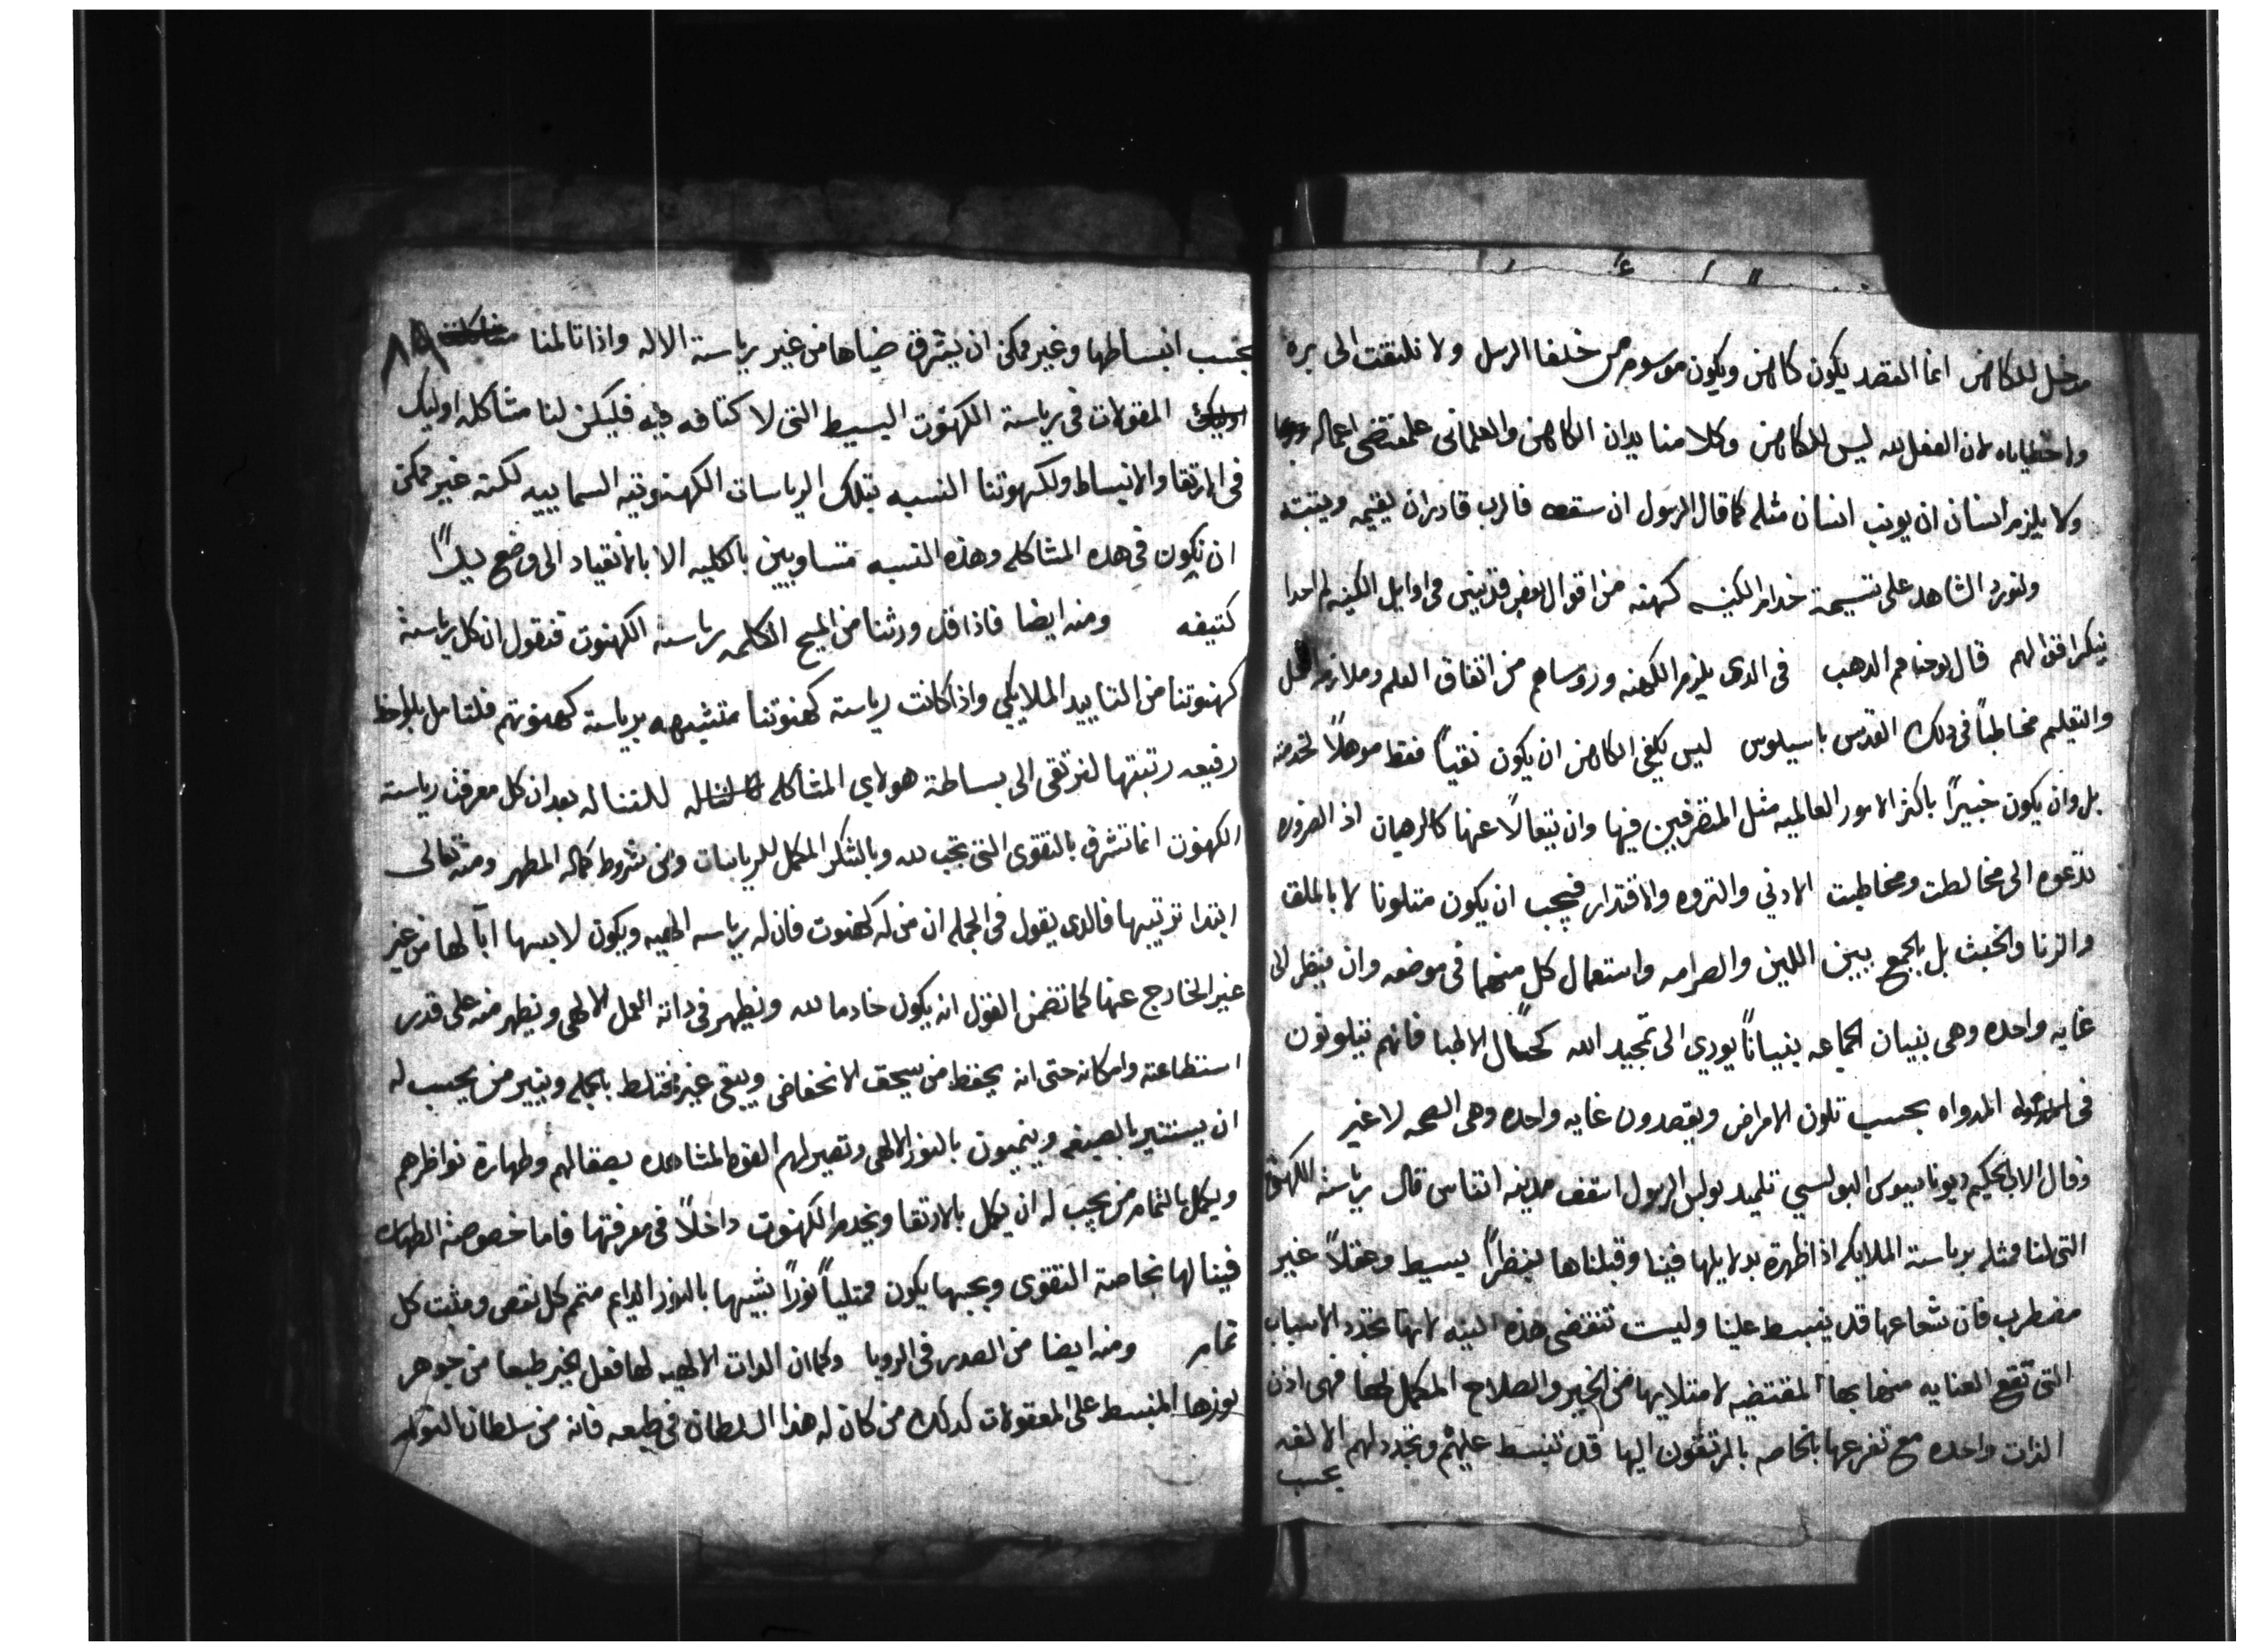 مدخل للكاهن انما القصد يكون كاهن ويكون موسوم من خلفا الرسل ولا نلتفت الى بره
ولا خطاياه لان الفعل لله ليس للكاهن وكلا منا يدان الكاهن والعلمانى علمقتضى اعماله
ولا يلزم انسان ان يونب انسان مثله كما قال الرسول ان سقط فالرب قادر ان يقيمه ويثبته
ولنورد الشاهد على تسيمة خدام الكنيسه كهنه من اقوال فى اوايل الكنيسه لم احدا
ينكر اقوالهم قال يوحنا فم الدهب فى الدى يلزم الكهنه وروساهم من اتفاق العلم وملازمه
والتعليم مخاطبًا فى دلك القدس باسيلوس ليس يكفى الكاهن ان يكون نقيًا فقط موهلًا لخدمته
بل وان يكون خبيرًا باكثر الامور العالميه مثل المتصرفين فيها وان يتعالًا عنها كالرهبان اذ الضروره
تدعوه الى مخالطت ومخاطبت الادني والثروه والاقتدار فيجب ان يكون متلونا لا بالملق
والزنا والخبث بل بالجمع بيين اللين والصرامه واستعمال كل منهما فى موضعه وان ينظر الى
غايه واحده وهى بنيان الجماعه بنيانًا يودي الى تمجيد الله كحال الاطبا فانهم يتلونون
فى المدواه بحسب تلون الامراض ويقصدون غايه واحده وهى الصحه لا غير
وقال الاب الحكيم ديوناسيوس البولسي تلميد بولس الرسول اسقف مدينه اتناس قال رياسة الكهنوت
التى لنا ممثله برياسة الملايكه اذا ظهرة بدلايلها فينا وقبلناها بنظرًا بسيط وعقلًا غير
مضطرب فان شعاعها قد ينبسط علينا وليست تقتضى هذه البنيه لانها تجدد الاسباب
التى تقع العنايه منها بها المقتضيه لامتلايها من الخير والصلاح المكمل لها فهى اذن
الذات واحده مع تفرعها بالخاصه بالمرتقون اليها قد تنبسط عليهم وتجدد لهم الالفه
بحسب
بحسب انبساطها وغير ممكن ان يشرق ضياها من غير رياسة الاله واذا تالمنا مشاكلة ٨٩
اوليك المقولات فى رياسة الكهنوت البسيط التى لا كتافه فيه فليكن لنا مشاكله اوليك
فى الارتقا والانبساط ولكهنوتنا النسبه بتلك الرياسات الكهنوتيه السماييه لكنه غير ممكن
ان نكون فى هده المشاكله وهذه النسبه متساويين بالكليه الا بالانقياد الى وضع
كتيفه ومنه ايضا فاذا قد ورثنا من المسيح الكلمه رياسة الكهنوت فنقول ان كل رياسة
كهنوتنا من التاييد الملايكي واذا كانت رياسة كهنوتنا متشبهه برياسة كهنوتهم فلنتامل بلواحظ
رفيعه رتبتها لنرتقى الى بساطة هولاي المشاكله للتناله بعد ان كل معرفت رياسة
الكهنوت انما تشرق بالتقوى التى تجب لله وبالشكر المكمل للربانيات وفى شروط كماله المطهر ومنه تعالى
ابتدا ترتيبها فالدى يقول فى الجمله ان من له كهنوت فان له رياسه الهيه ويكون لابسها ابًا لها من غير
غير الخارج عنها كما تضمن القول انه يكون خادما لله ونظهر فى داته العمل الالهى ونظهر منه على قدر
استطاعته وامكانه حتى انه يحفظ من يسحق الانخفاض ويبقى غير مختلط بالجمله وينير من يحسب له
ان يستنير بالصيغه وينمون بالنور الالهى وتصير لهم القوه المشاهده بصقالهم وطهارة نواظرهم
ويكمل بالتمام من يجب له ان يكمل بالارتقا ويخدم الكهنوت داخلًا فى معرفتها فاما خصوصة الطهاره
فينالها بخاصة التقوى وبحبها يكون ممتليًا نورًا بشبهها بالنور الدايم متمم كل نقص ومثبت كل
تمام ومنه ايضا من الصدر فى الرويا وكما ان الدات الالهيه لها فعل الخير طبعا من جوهر
نورها المنبسط على المعقولات كدلك من كان له هذا السلطان فى طبعه فانه من سلطان النور